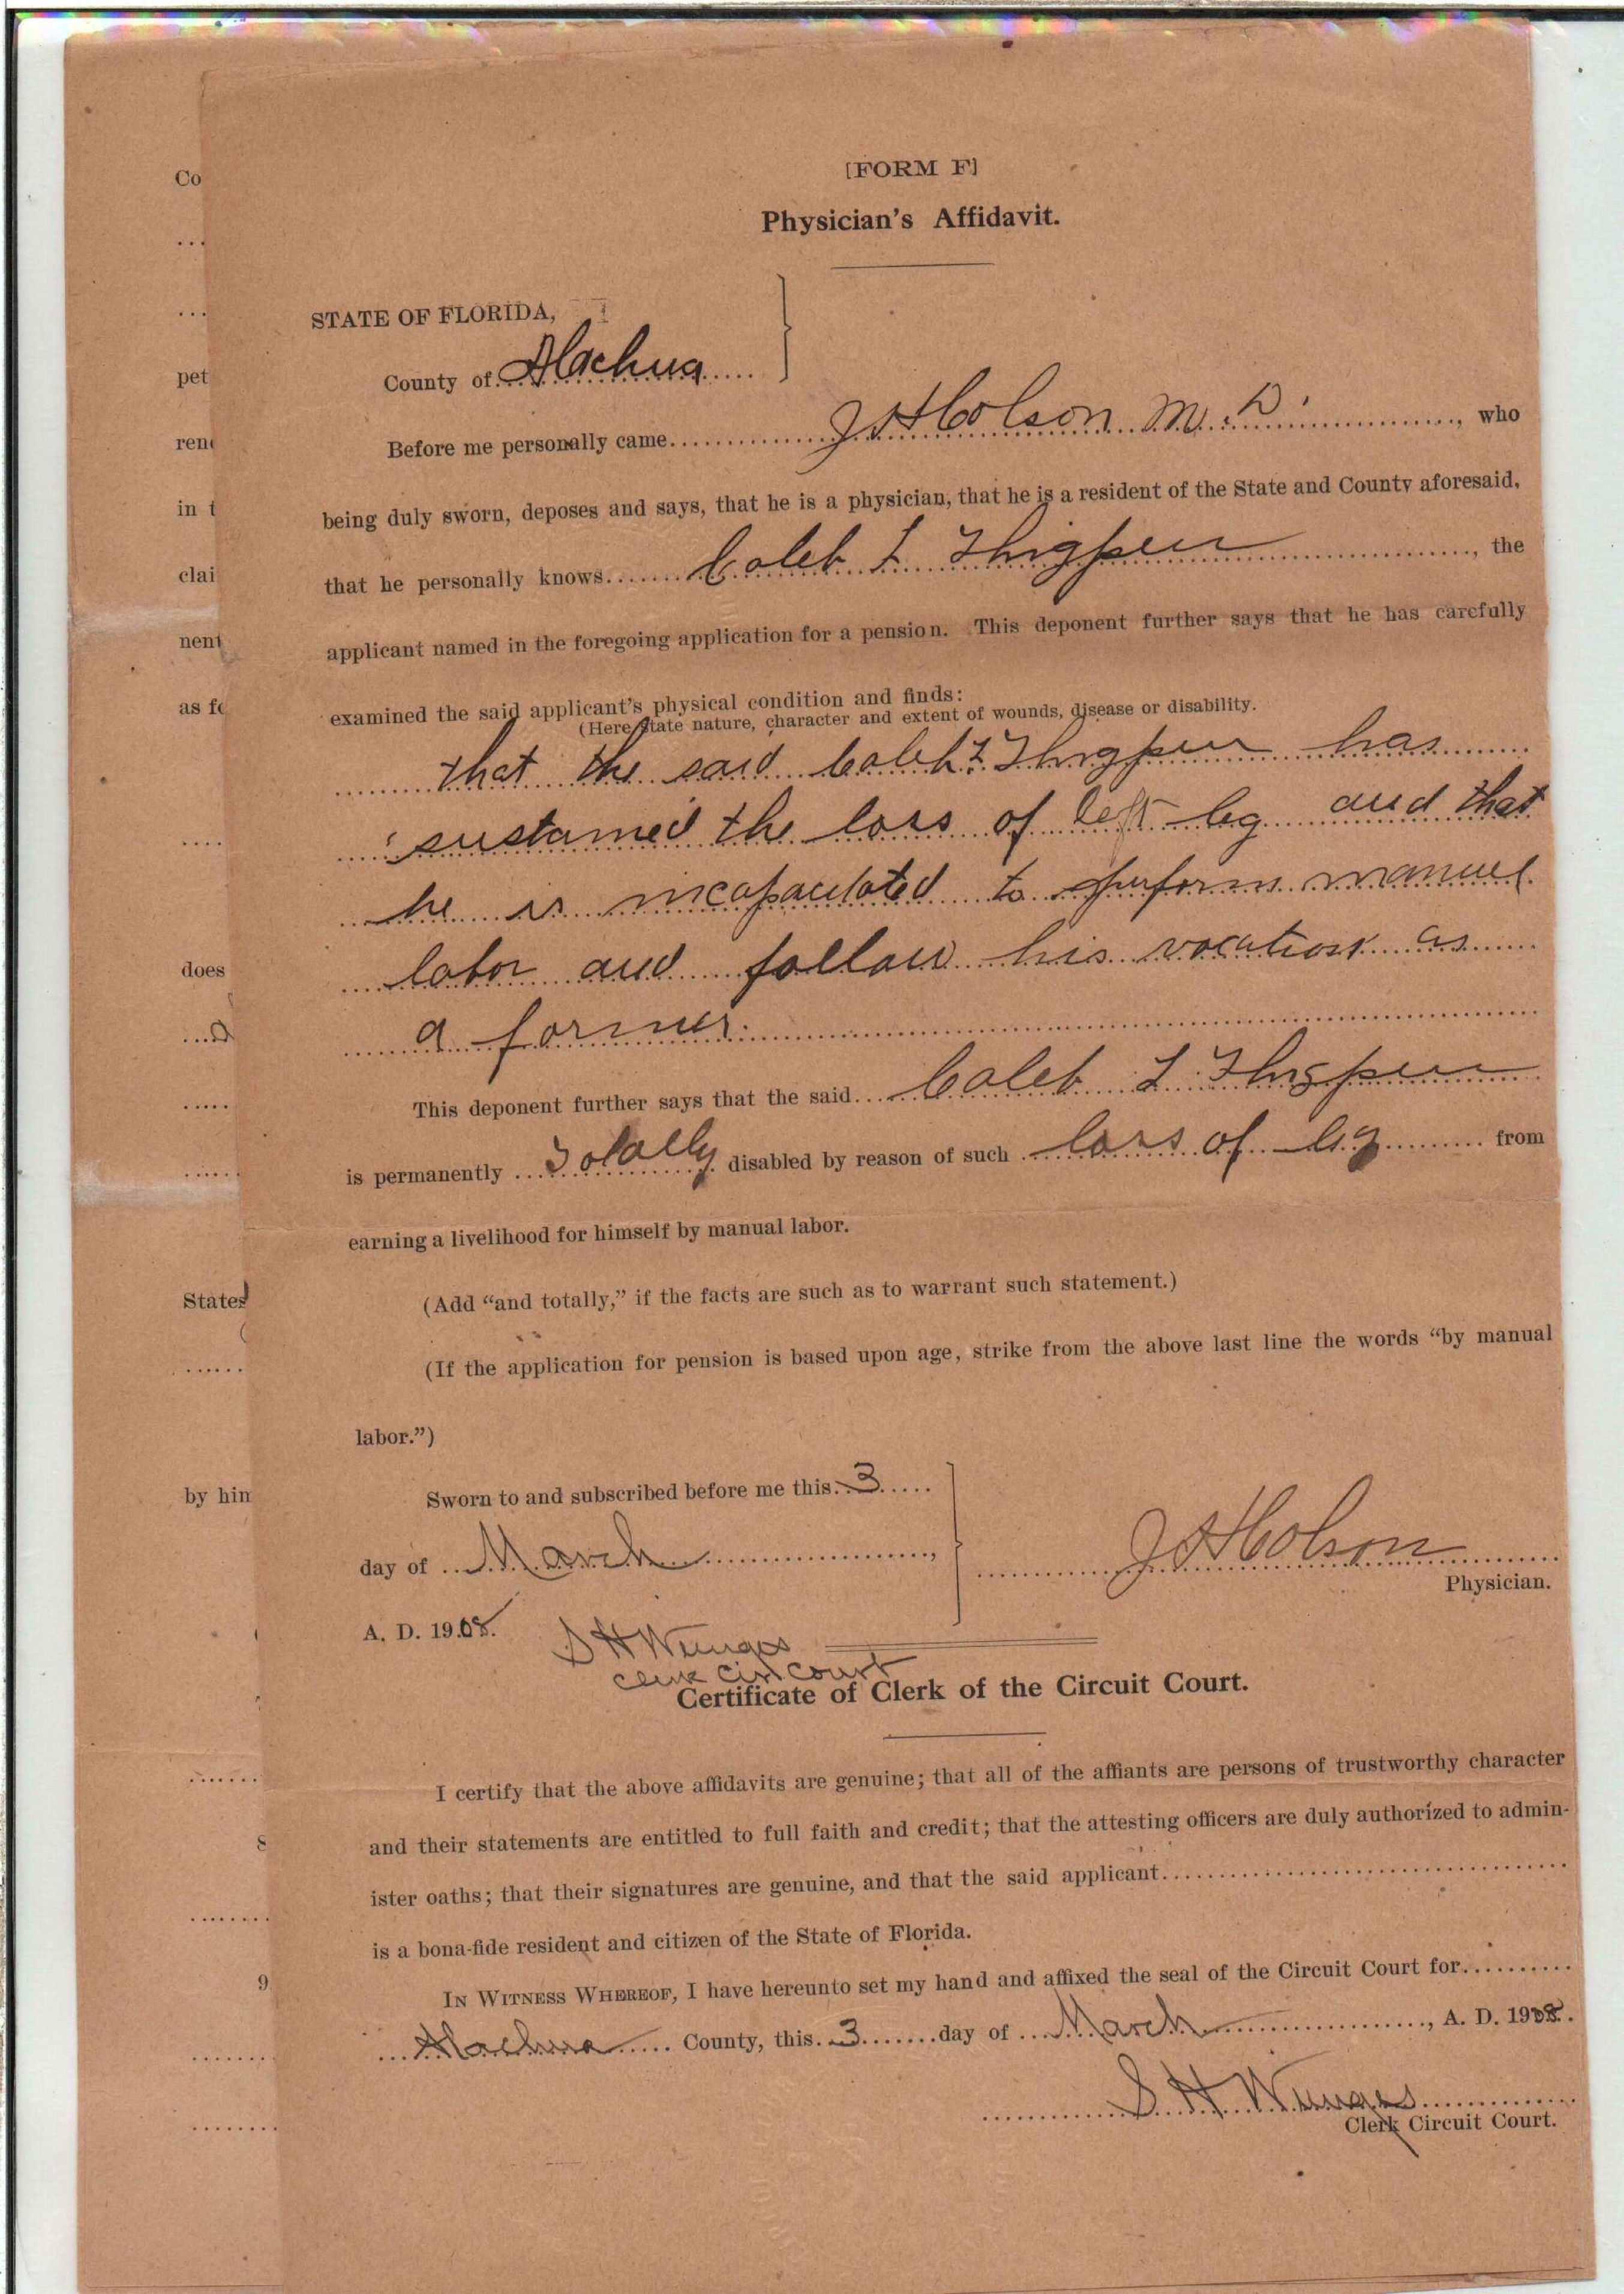 [FORM F]
Physician's Affidavit.
STATE OF FLORIDA,
County of Alachua
Before me personally came J H Colson M. D., who
being duly sworn, deposes and says, that he is a physician, that he is a resident of the State and County aforesaid,
that he personally knows Caleb L Thigpen, the
applicant named in the foregoing application for a pension. This deponent further says that he has carefully
examined the said applicant's physical condition and finds:
(Here state nature, character and extent of wounds, disease or disability.
that the said Caleb L Thigpen has
sustained the loss of left leg and that
he is incapacitated to perform manuel
labor and follow his vocation as
a farmer.
This deponent further says that the said Caleb L Thigpen
is permanently Totally disabled by reason of such loss of leg from
earning a livelihood for himself by manual labor.
(Add "and totally," if the facts are such as to warrant such statement.)
(If the application for pension is based upon age, strike from the above last line the words "by manual
labor.")
Sworn to and subscribed before me this 3
day of March,
A. D. 1908.
J H Colson
Physician.
S H Wienges
Clerk Cir Court
Certificate of Clerk of the Circuit Court.
I certify that the above affidavits are genuine; that all of the affiants are persons of trustworthy character
and their statements are entitled to full faith and credit; that the attesting officers are duly authorized to admin-
ister oaths; that their signatures are genuine, and that the said applicant
is a bona-fide resident and citizen of the State of Florida.
IN WITNESS WHEREOF, I have hereunto set my hand and affixed the seal of the Circuit Court for
Alachua County, this 3 day of March, A. D. 1908.
S H Wienges
Clerk Circuit Court.
Co
pet
ren
in t
clai
nent
as fo
does
States
by him
8
9